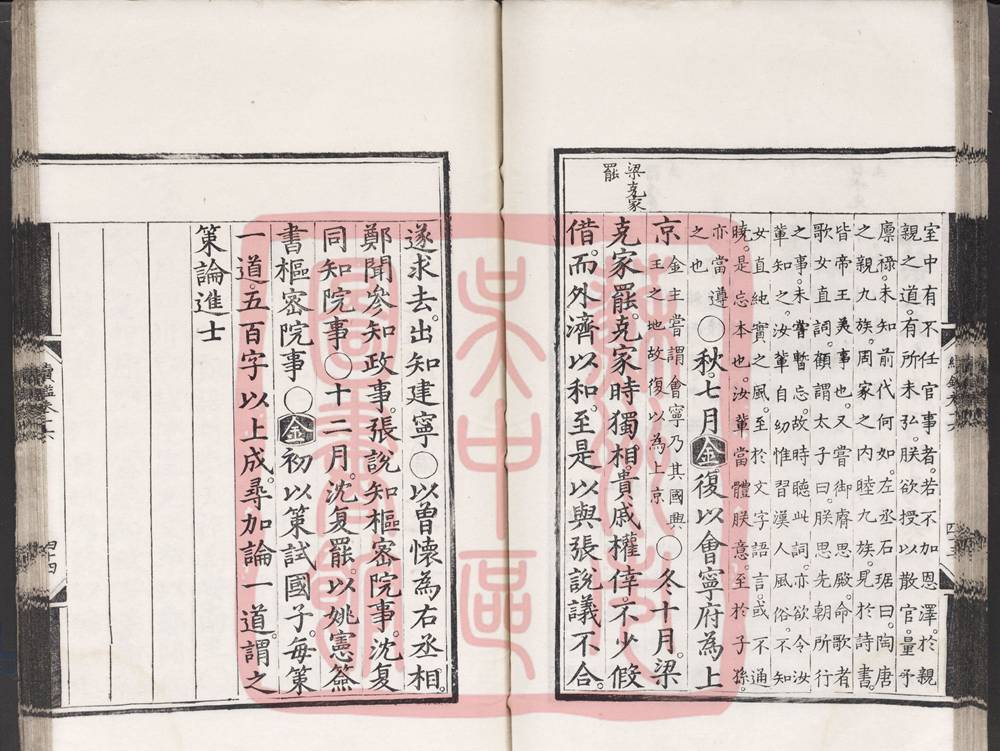 梁克家
罷
室中有不任官事者。若不加恩澤。於親
親之道。有所未弘。朕欲授以散官。量予
廪祿。未知前代何如。左丞石琚曰。陶唐
之親九族。周家之内睦九族。見於詩書。
皆帝王美事也。又嘗御睿思殿。命歌者
歌女直詞。顧謂太子曰。朕思先朝所行
之事。未嘗暫忘。故時聽此詞。亦欲令汝
輩知之。汝輩自幼惟習漢人風俗。不知
女直純實之風。至於文字語言。或不通
曉。是忘本也。汝輩當體朕意。至於子孫。
亦當遵
之也
〇秋。七月金復以會寧府為上
京
金主嘗謂會寧乃其國興
王之地故復以為上京
〇冬十月。梁
克家罷。克家時獨相。貴戚權倖。不少假
借。而外濟以和。至是以與張說議不合。
遂求去。出知建寧〇以曾懷為右丞相。
鄭聞參知政事。張說知樞密院事。沈复
同知院事〇十二月。沈复罷。以姚憲簽
書樞密院事〇金初以策試國子。每策
一道。五百字以上成。尋加論一道。謂之
策論進士